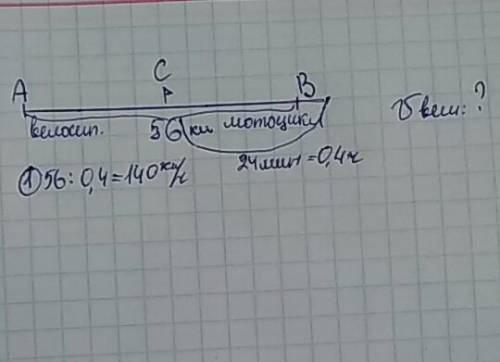 C
A B
велосип. 56 км мотоцикл
vвел: ?
24 мин = 0,4ч
① 56 : 0,4 = 140 км/ч